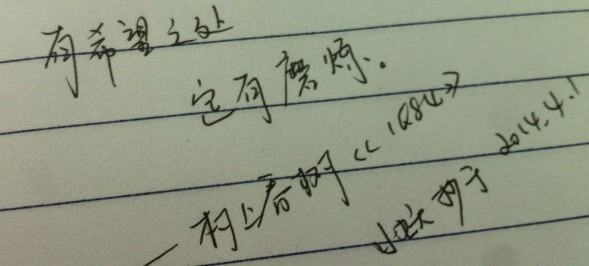 有希望之处
定有磨炼。
—村上春树《1Q84》
抄于2014.4.1